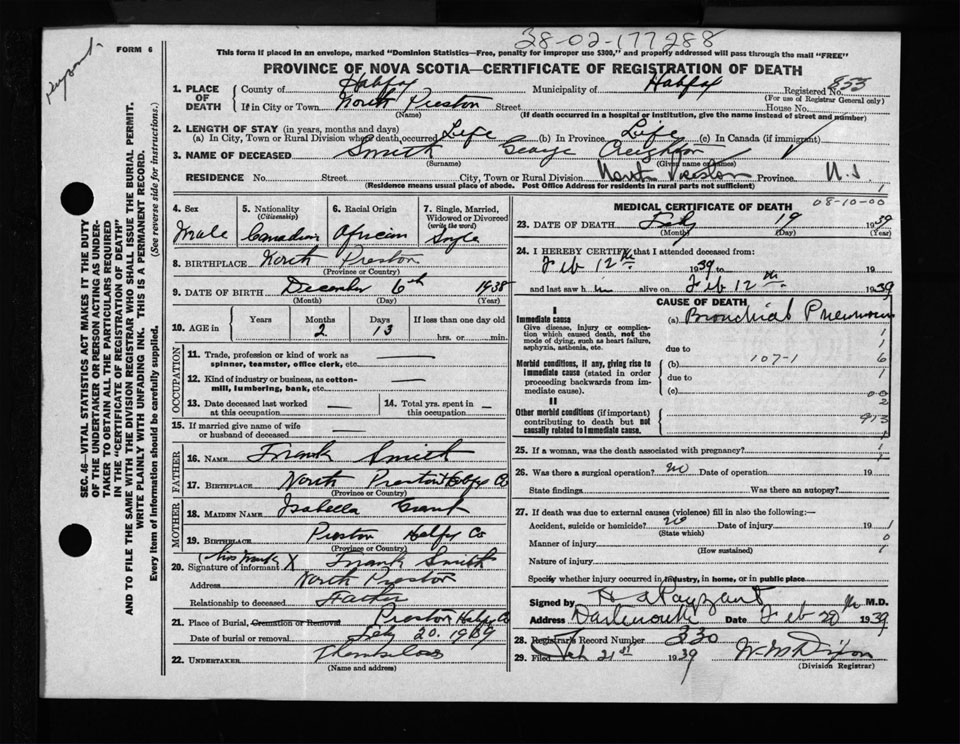 38-02-177288
FORM 6
This form if placed in an envelope, marked "Dominion Statistics—Free, penalty for improper use $300," and properly addressed will pass through the mail "FREE"
PROVINCE OF NOVA SCOTIA—CERTIFICATE OF REGISTRATION OF DEATH
SEC. 46—VITAL STATISTICS ACT MAKES IT THE DUTY
OF THE UNDERTAKER OR PERSON ACTING AS UNDER-
TAKER TO OBTAIN ALL THE PARTICULARS REQUIRED
IN THE "CERTIFICATE OF REGISTRATION OF DEATH"
AND TO FILE THE SAME WITH THE DIVISION REGISTRAR WHO SHALL ISSUE THE BURIAL PERMIT.
WRITE PLAINLY WITH UNFADING INK. THIS IS A PERMANENT RECORD.
Every item of information should be carefully supplied. (See reverse side for instructions.)
1. PLACE OF DEATH County of Halifax Municipality of Halifax Registered No. 853
(For use of Registrar General only)
If in City or Town North Preston Street House No.
(Name) (If death occurred in a hospital or institution, give the name instead of street and number)
2. LENGTH OF STAY (in years, months and days)
(a) In City, Town or Rural Division where death occurred Life (b) In Province Life (c) In Canada (if immigrant)
3. NAME OF DECEASED Smith George Creighton
(Surname) (Given name or names)
RESIDENCE No. Street City, Town or Rural Division North Preston Province N.S.
(Residence means usual place of abode. Post Office Address for residents in rural parts not sufficient) 1
4. Sex Male
5. Nationality (Citizenship) Canadian
6. Racial Origin African
7. Single, Married, Widowed or Divorced (write the word) Single
8. BIRTHPLACE North Preston
(Province or Country)
9. DATE OF BIRTH December 6th 1938
(Month) (Day) (Year)
10. AGE in Years Months 2 Days 13 If less than one day old hrs. or min.
OCCUPATION
11. Trade, profession or kind of work as spinner, teamster, office clerk, etc. —
12. Kind of industry or business, as cotton-mill, lumbering, bank, etc. —
13. Date deceased last worked at this occupation — 14. Total yrs. spent in this occupation —
15. If married give name of wife or husband of deceased —
FATHER
16. NAME Frank Smith
17. BIRTHPLACE North Preston Halfx Co
(Province or Country)
MOTHER
18. MAIDEN NAME Isabella Grant
19. BIRTHPLACE Preston Halfx Co
(Province or Country)
(his mark) X
20. Signature of informant Frank Smith
Address North Preston
Relationship to deceased Father
21. Place of Burial, Cremation or Removal Preston Halfx Co
Date of burial or removal Feby 20. 1939
22. UNDERTAKER
(Name and address)
MEDICAL CERTIFICATE OF DEATH 08-10-00
23. DATE OF DEATH Feby 19 1939
(Month) (Day) (Year)
24. I HEREBY CERTIFY that I attended deceased from:
Feb 12th 1939 to 19
and last saw h im alive on Feb 12th 1939
CAUSE OF DEATH
I
Immediate cause (a) Bronchial Pneumonia
Give disease, injury or complication which caused death, not the mode of dying, such as heart failure, asphyxia, asthenia, etc.
due to
Morbid conditions, if any, giving rise to immediate cause (stated in order proceeding backwards from immediate cause). (b) 107-1
due to
(c)
II
Other morbid conditions (if important) contributing to death but not causally related to immediate cause. 913
25. If a woman, was the death associated with pregnancy?
26. Was there a surgical operation? no Date of operation 19
State findings Was there an autopsy?
27. If death was due to external causes (violence) fill in also the following:—
Accident, suicide or homicide? no Date of injury 19
(State which)
Manner of injury
(How sustained)
Nature of injury
Specify whether injury occurred in industry, in home, or in public place
Signed by H A Payzant M.D.
Address Dartmouth Date Feb 20th 1939
28. Registrar's Record Number 830
29. Filed Feb 21st 1939 W. M. Dixon
(Division Registrar)